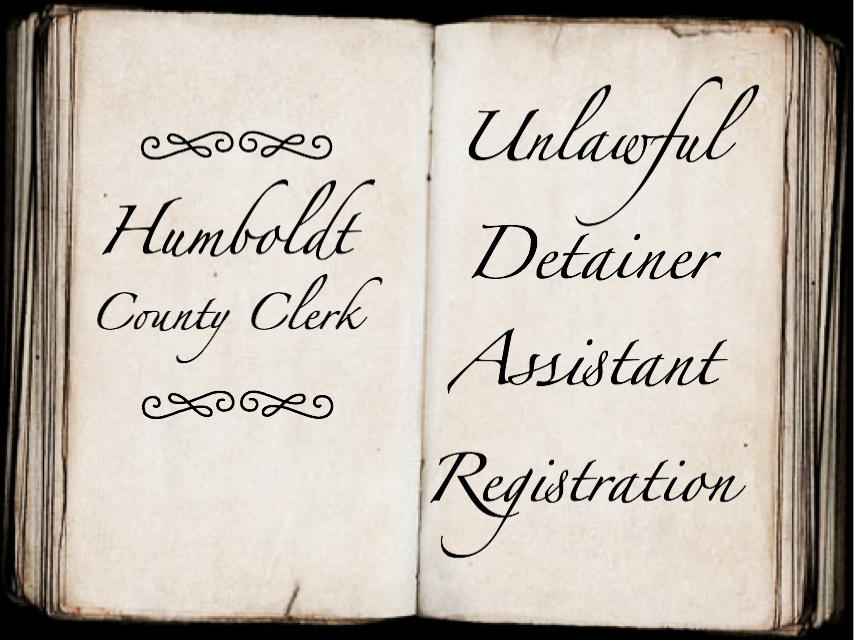 Humboldt
County Clerk
Unlawful
Detainer
Assistant
Registration